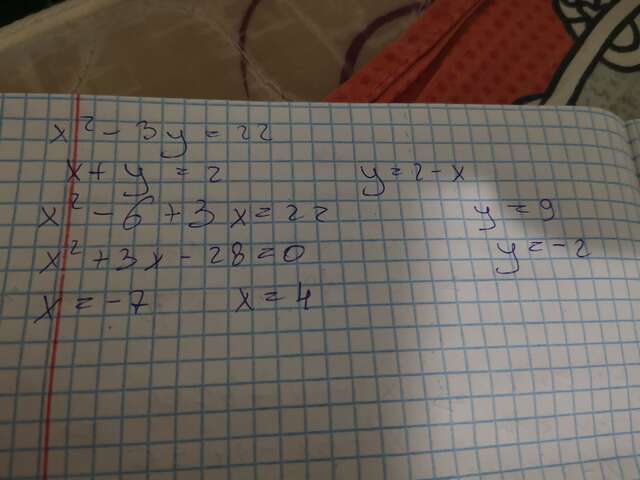 x² - 3y = 22
x + y = 2 y = 2 - x
x² - 6 + 3x = 22 y = 9
x² + 3x - 28 = 0 y = -2
x = -7 x = 4